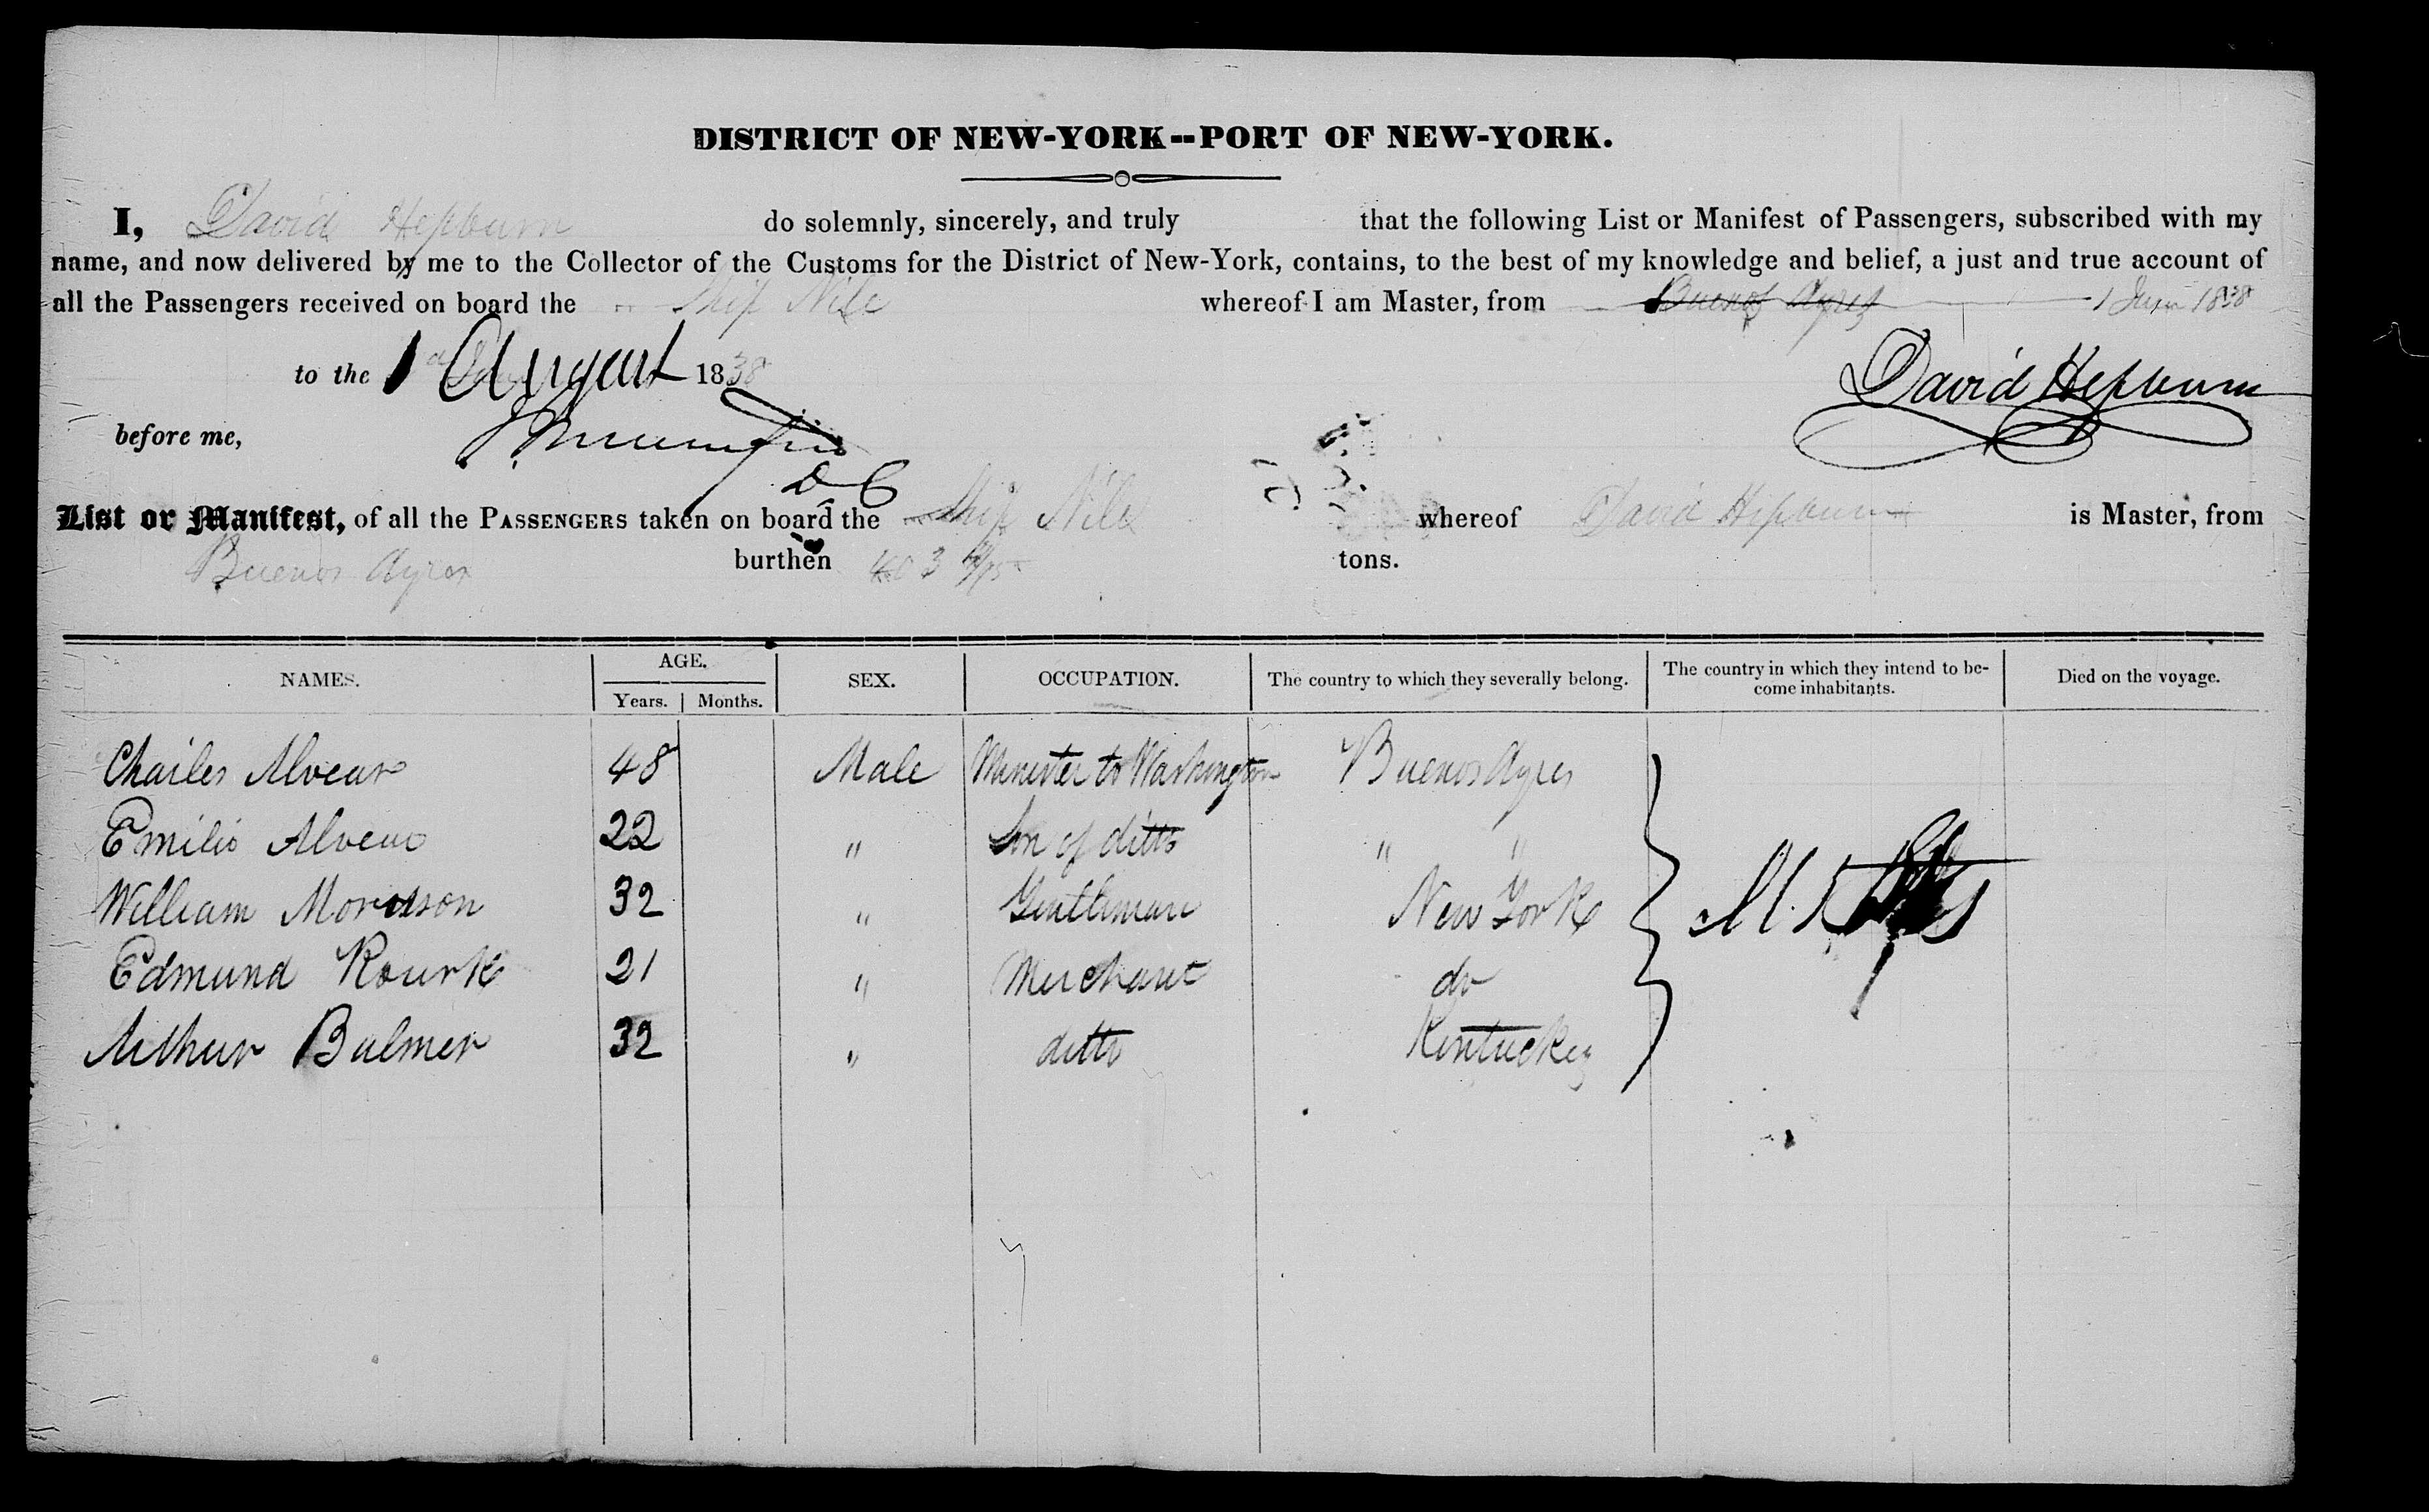 DISTRICT OF NEW-YORK--PORT OF NEW-YORK.
I, David Hepburn do solemnly, sincerely, and truly that the following List or Manifest of Passengers, subscribed with my
name, and now delivered by me to the Collector of the Customs for the District of New-York, contains, to the best of my knowledge and belief, a just and true account of
all the Passengers received on board the Ship Nile whereof I am Master, from Buenos Ayres 1838
to the 1 August 1838 David Hepburn
before me,
D C
List or Manifest, of all the PASSENGERS taken on board the Ship Nile whereof David Hepburn is Master, from
Buenos Ayres burthen tons.
NAMES. AGE. SEX. OCCUPATION. The country to which they severally belong. The country in which they intend to be- Died on the voyage.
Years. Months. come inhabitants.
Charles Alvear 48 Male Minister to Washington Buenos Ayres
Emilio Alvear 22 " Son of ditto " "
William Morisson 32 " Gentleman New York
Edmund Rourk 21 " Merchant do
Arthur Bulmer 32 " ditto Kentucky